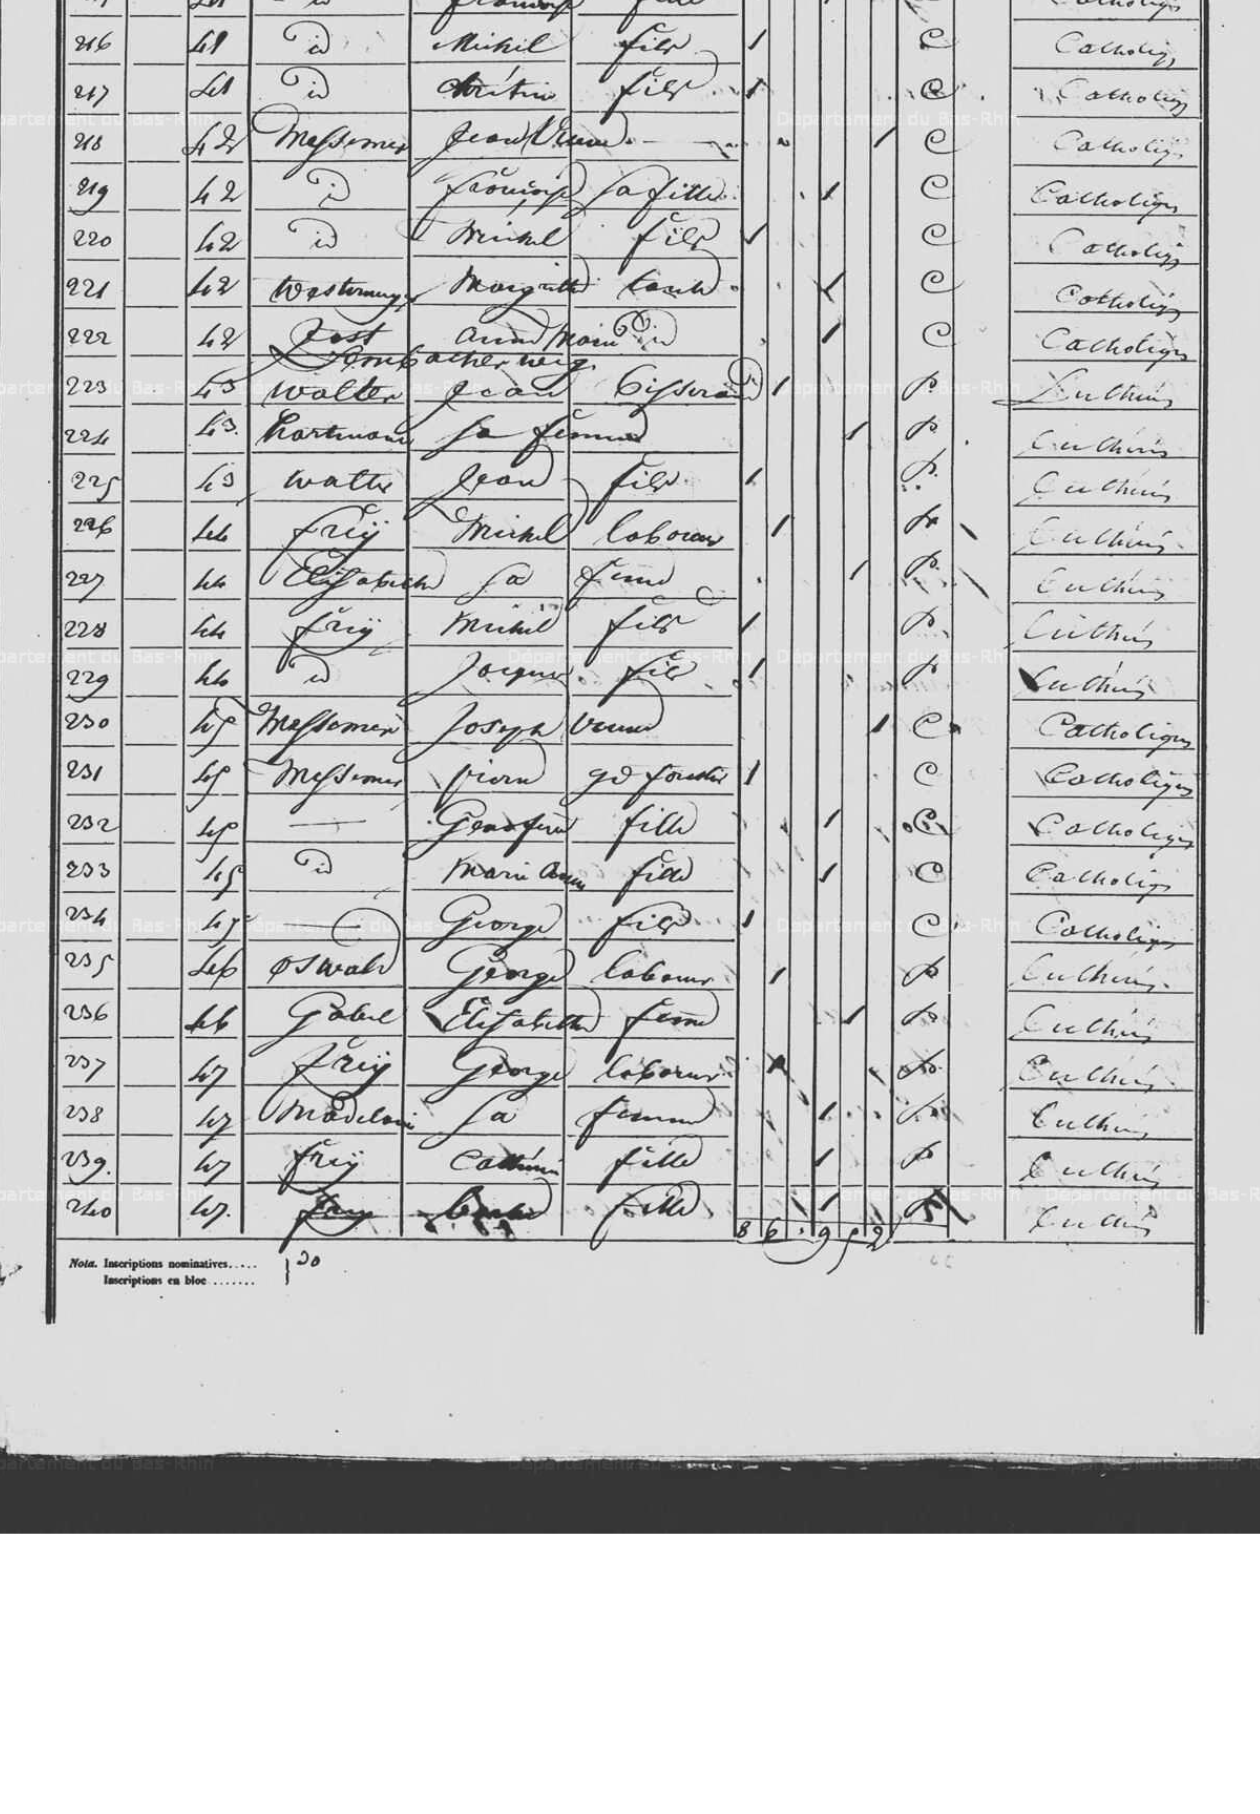 216 41 id Michel fils 1 C Catholiq
217 41 id fils 1 C Catholiq
218 42 Messemer Jean Veuve 1 C Catholiq
219 42 id françoise sa fille 1 C Catholiq
220 42 id Michel fils 1 C Catholiq
221 42 Margritte 1 C Catholiq
222 42 Jost anne Marie id 1 C Catholiq
223 43 Walter Jean Tisserand 1 P. Luthéri
224 43. hartmann sa femme 1 P. Luthéri
225 43 Walter Jean fils 1 P. Luthéri
226 44 freÿ Michel laboureur 1 P. Luthéri
227 44 Elisabeth sa feme 1 P. Luthéri
228 44 freÿ Michel fils 1 P. Luthéri
229 44 id Jacques fils 1 P Luthéri
230 45 Messemer Joseph Veuve 1 C Catholique
231 45 Messemer 1 C Catholique
232 45 — fille 1 C Catholiq
233 45 id Marie anne fille 1 C Catholiq
234 45 George fils 1 C Catholiq
235 46 oswald George laboureur 1 P Luthéri
236 46 Gabel Elisabethe feme 1 P Luthéri
237 47 freÿ George laboureur 1 P. Luthéri
238 47 Madeleine sa femme 1 P. Luthéri
239. 47 freÿ fille 1 P Luthéri
240 47. freÿ fille 1 P Luthéri
8 6 . 9 5 2
Nota. Inscriptions nominatives..... } 30
Inscriptions en bloc .......
Département du Bas-Rhin